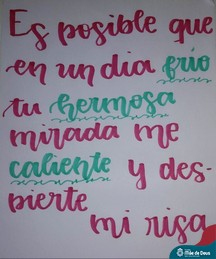 Es posible que
en un dia frio
tu hermosa
mirada me
caliente y des-
pierte
mi risa
Mãe de Deus